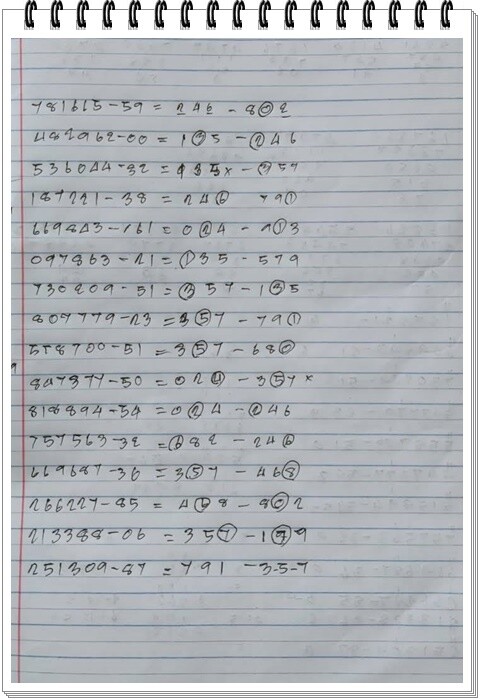 781615-59 = 246 - 802
482962-00 = 135 - 246
536044-32 = 135x - 357
187221-38 = 246 791
669843-161 = 024 - 913
097863-21 = 135 - 579
730209-51 = 357-135
807779-23 = 357 - 791
558700-51 = 357 - 680
847377-50 = 024 - 357x
818894-54 = 024 - 246
757563-32 = 682 - 246
669687-36 = 357 - 468
266227-85 = 468 - 802
213388-06 = 357 - 179
251309-87 = 791 -3-5-7